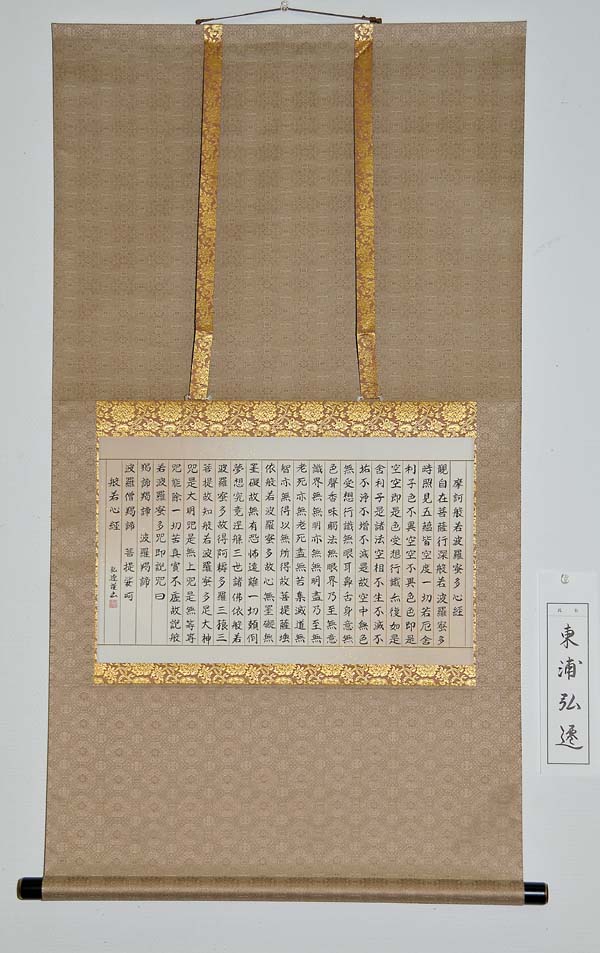 摩訶般若波羅蜜多心經
觀自在菩薩行深般若波羅蜜多
時照見五蘊皆空度一切苦厄舍
利子色不異空空不異色色即是
空空即是色受想行識亦復如是
舍利子是諸法空相不生不滅不
垢不淨不增不減是故空中無色
無受想行識無眼耳鼻舌身意無
色聲香味觸法無眼界乃至無意
識界無無明亦無無明盡乃至無
老死亦無老死盡無苦集滅道無
智亦無得以無所得故菩提薩埵
依般若波羅蜜多故心無罣礙無
罣礙故無有恐怖遠離一切顛倒
夢想究竟涅槃三世諸佛依般若
波羅蜜多故得阿耨多羅三藐三
菩提故知般若波羅蜜多是大神
咒是大明咒是無上咒是無等等
咒能除一切苦真實不虛故說般
若波羅蜜多咒即說咒曰
羯諦羯諦 波羅羯諦
波羅僧羯諦 菩提
般若心經
東浦弘遷